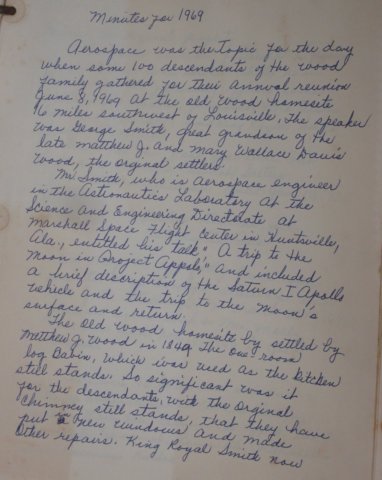 Minutes for 1969
Aerospace was the topic for the day
when some 100 descendants of the Wood
family gathered for their annual reunion
June 8, 1969 at the old Wood homesite
16 miles southwest of Louisville. The speaker
was George Smith, great grandson of the
late Matthew J. and Mary Wallace Davis
Wood, the orginal settlers.
Mr Smith, who is Aerospace engineer
in the Astronautics Laboratory at the
Science and Engineering Directorate at
Marshall Space Flight Center in Huntsville,
Ala., entitled his talk "A trip to the
Moon in Project Appolo," and included
a brief description of the Saturn I Apollo
vehicle and the trip to the moon's
surface and return.
The Old Wood homesite by settled by
Matthew J. Wood in 1849. The one room
log Cabin, which was used as the kitchen
still stands. So significant was it
for the descendants, with the Orginal
Chimney still stands, that they have
put new windows and made
other repairs. King Royal Smith now